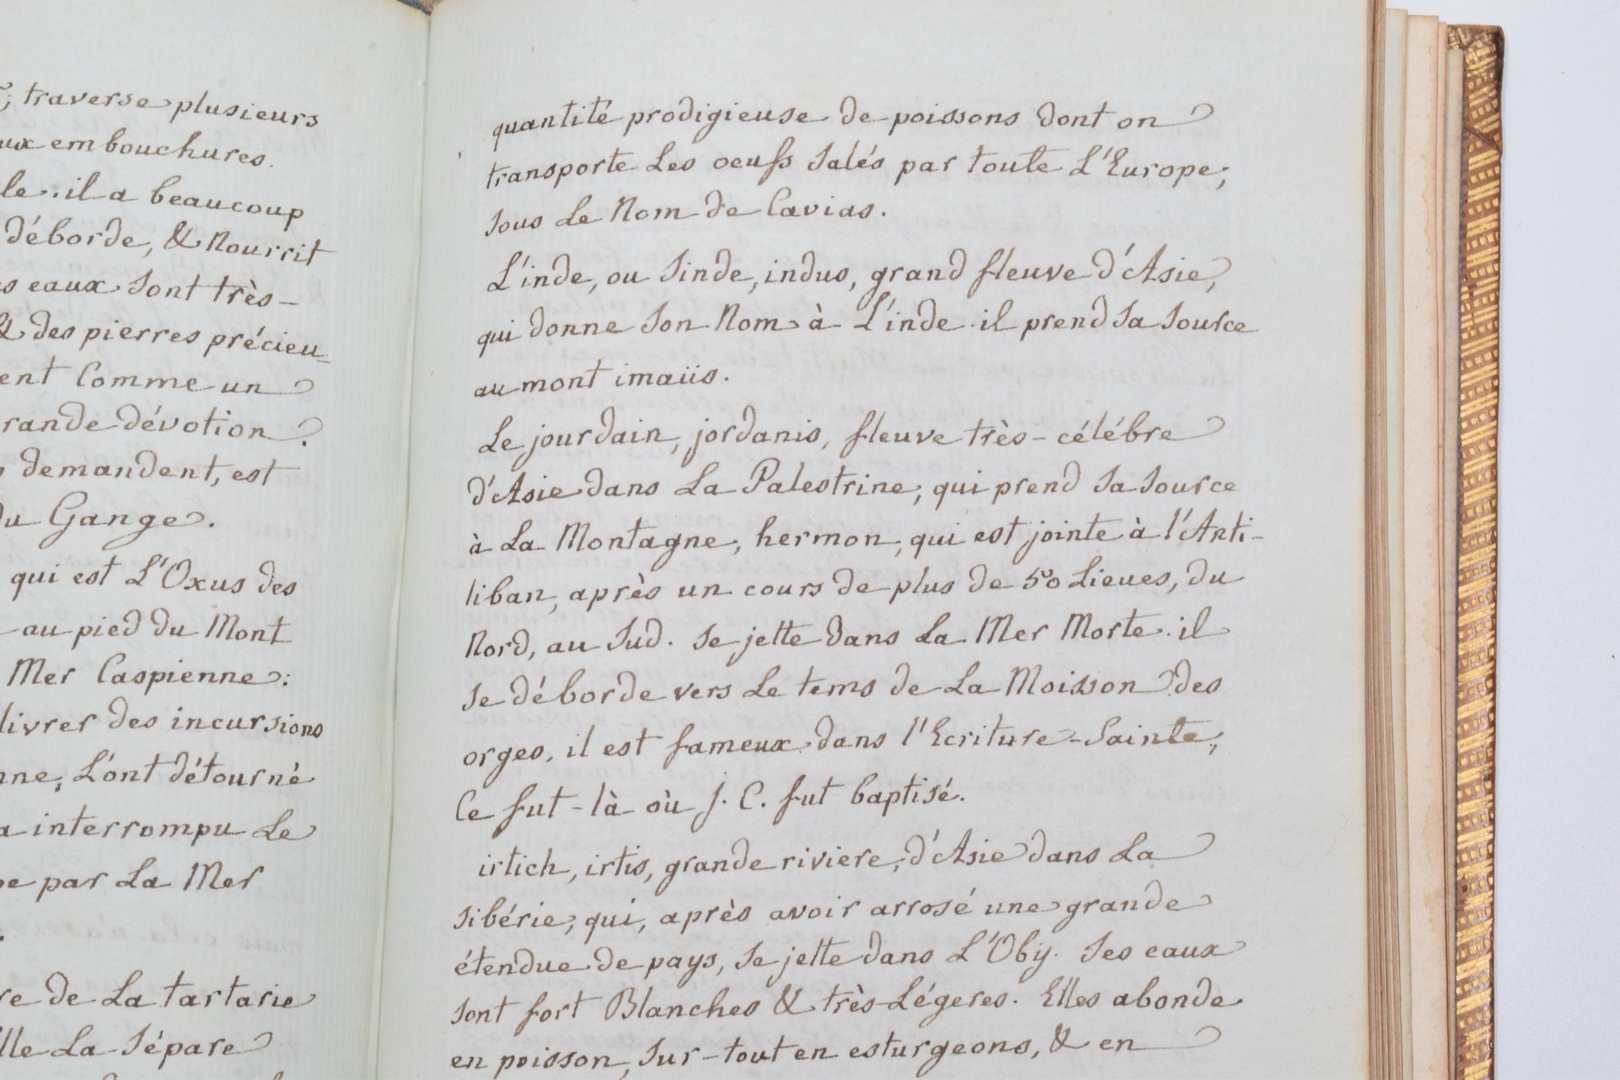 ; traverse plusieurs
ux embouchures.
le. il a beaucoup
déborde, & Nourrit
s eaux sont très-
& des pierres précieu=
ent Comme un
rande dévotion.
demandent, est
du Gange.
qui est L'Oxus des
au pied du Mont
Mer Caspienne:
livrer des incursions
nne, L'ont détourné
a interrompu Le
pe par La Mer
re de La tartarie
lle La Sépare
quantité prodigieuse de poissons dont on
transporte Les oeufs Salés par toute L'Europe,
Sous Le Nom de Cavias.
L'inde, ou Sinde, indus, grand fleuve d'Asie,
qui donne Son Nom à L'inde. il prend Sa Source
au mont imaüs.
Le jourdain, jordanis, fleuve très-célébre
d'Asie dans La Palestrine, qui prend Sa Source
à La Montagne, hermon, qui est jointe à l'Anti-
liban, après un cours de plus de 50 Lieues, du
Nord, au Sud. Se jette dans La Mer Morte. il
Se déborde vers Le tems de La Moisson des
orges, il est fameux dans l'Ecriture-Sainte,
Ce fut-là où J. C. fut baptisé.
irtich, irtis, grande riviere, d'Asie dans La
Sibérie, qui, après avoir arrosé une grande
étendue de pays, Se jette dans L'Oby. Ses eaux
Sont fort Blanches & très-Légeres. Elles abonde
en poisson, Sur-tout en esturgeons, & en